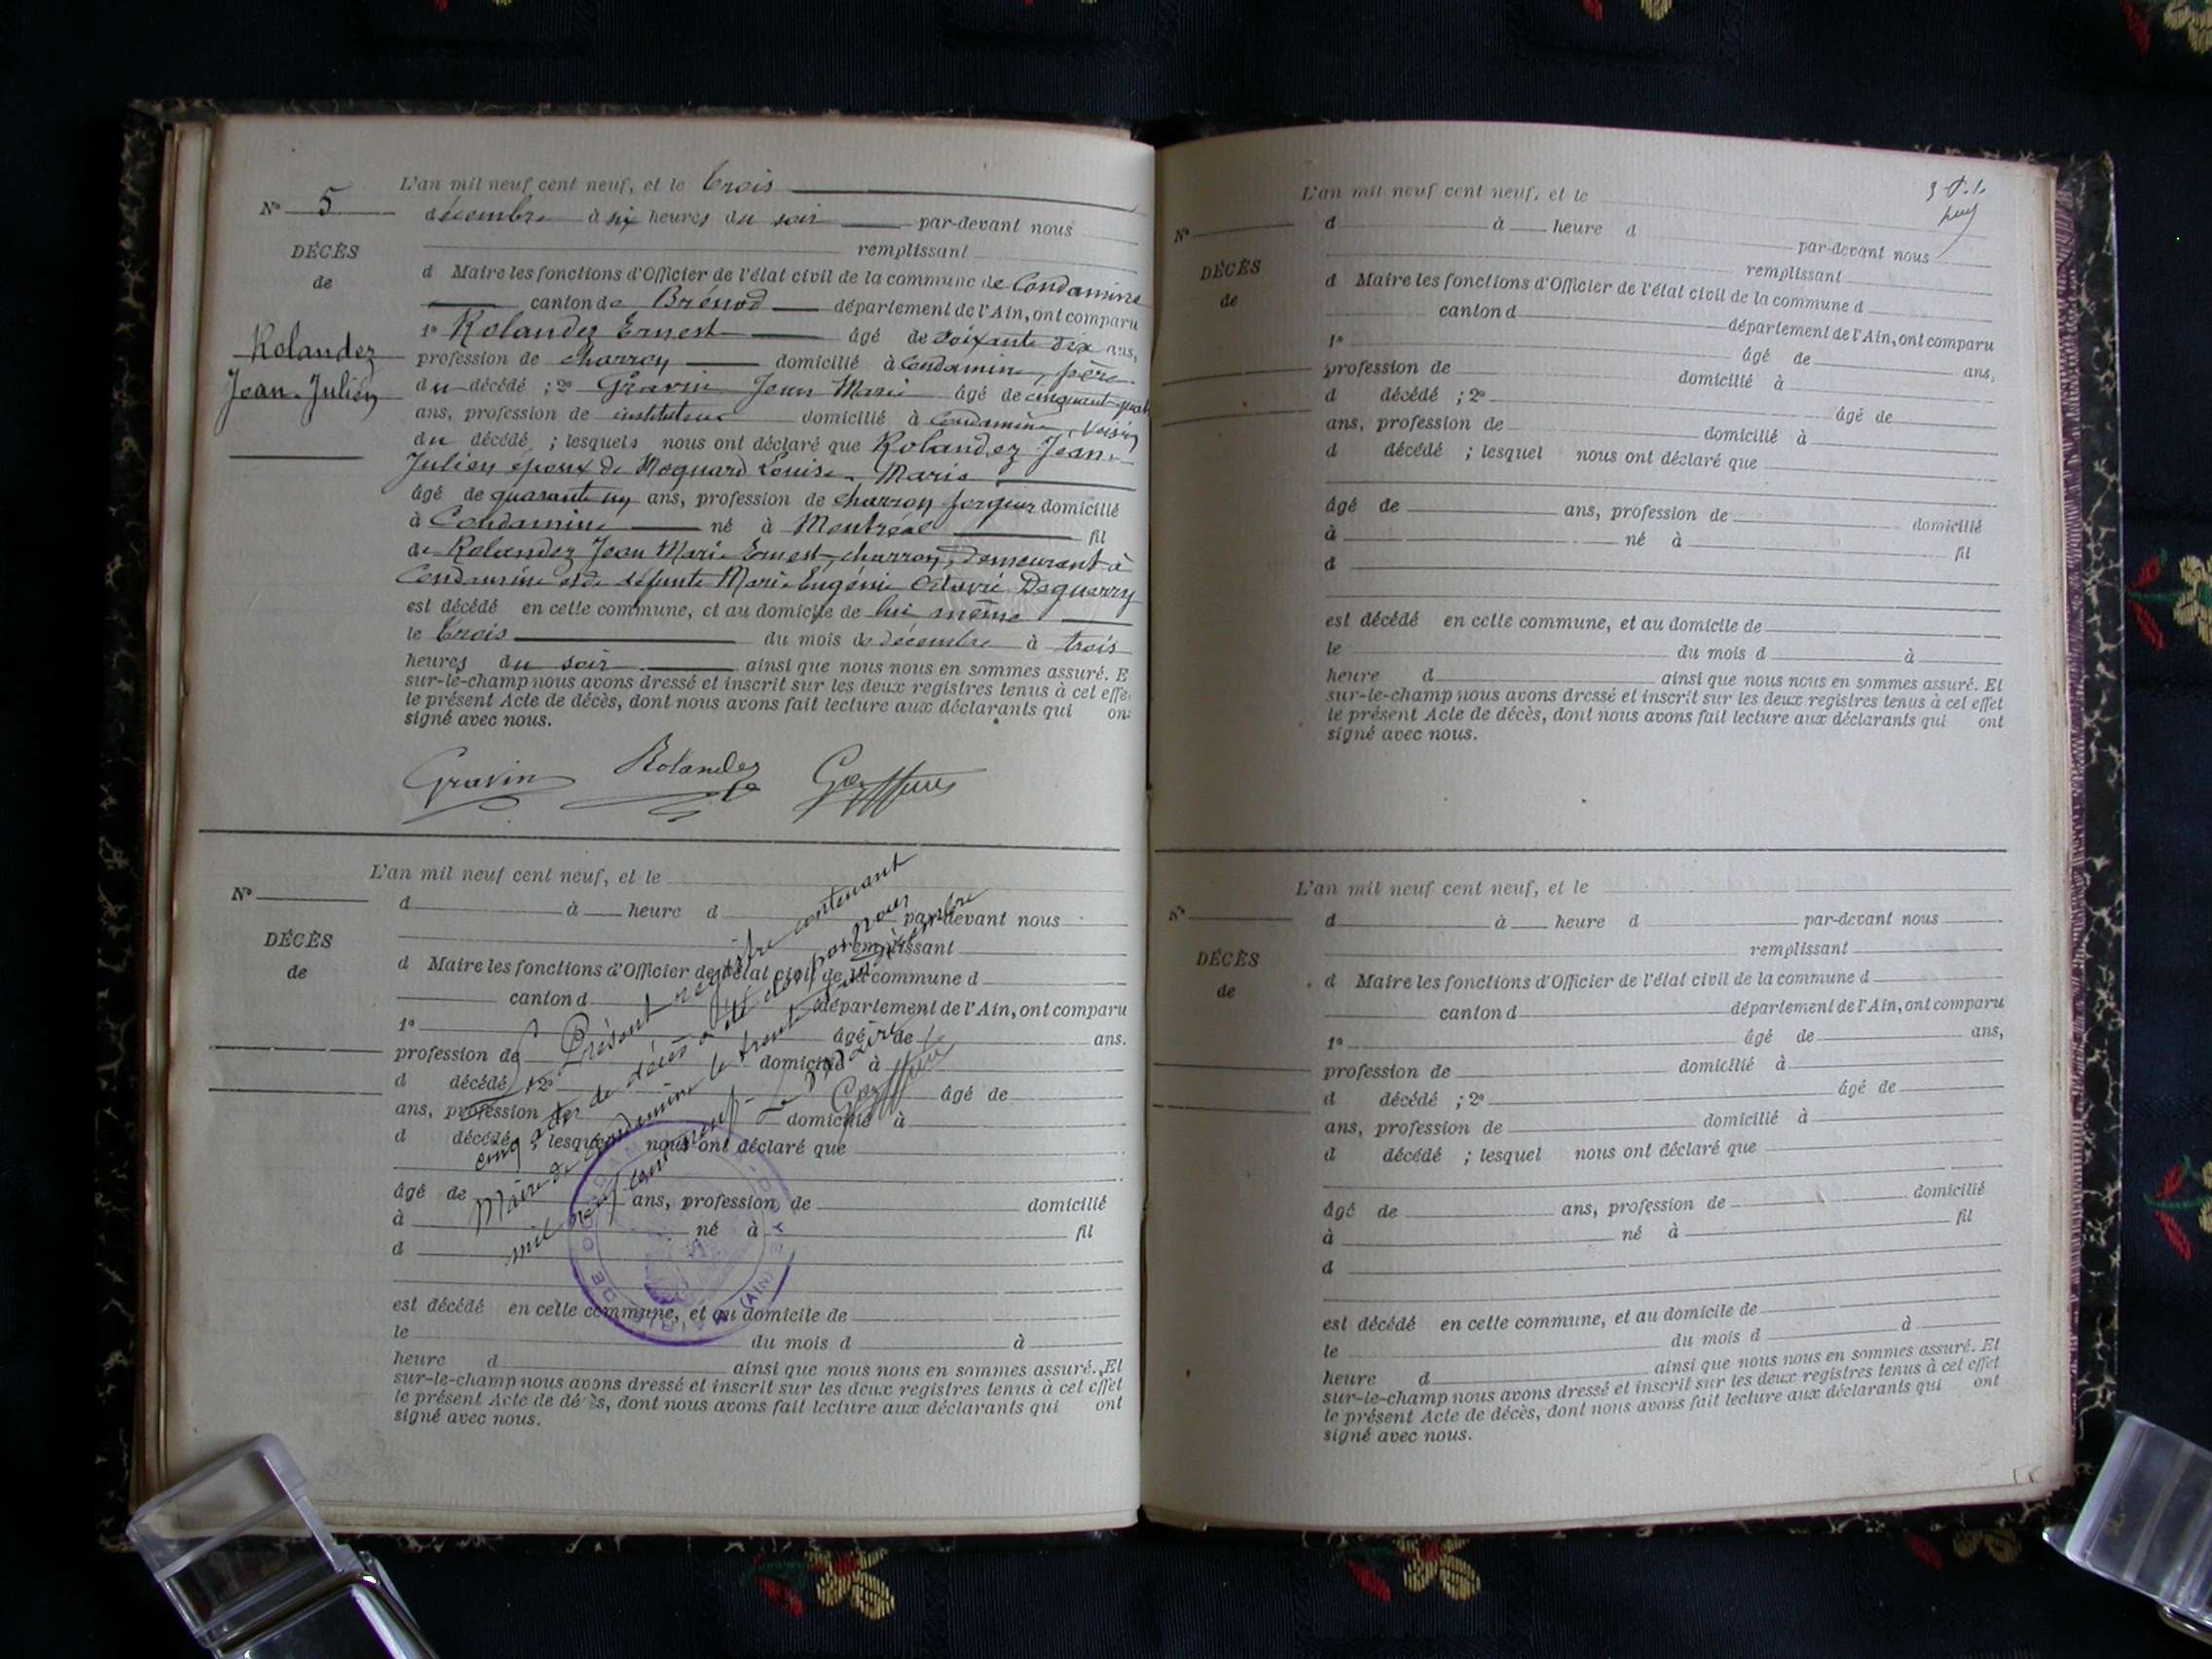 L'an mil neuf cent neuf, et le trois
N° 5
décembre à six heures du soir par-devant nous
remplissant
DÉCÈS
de
Rolandez
Jean-Julien
d Maire les fonctions d'Officier de l'état civil de la commune de Condamine
canton de Brénod département de l'Ain, ont comparu
1° Rolandez Ernest âgé de soixante dix ans,
profession de charron domicilié à Condamine, père
du décédé ; 2° Gravin Jean Marie âgé de cinquante quatre
ans, profession de instituteur domicilié à Condamine, voisin
du décédé ; lesquels nous ont déclaré que Rolandez Jean-
Julien époux de Moquard Louise Marie
âgé de quarante un ans, profession de charron forgeur domicilié
à Condamine né à Montréal fil
de Rolandez Jean Marie Ernest, charron, demeurant à
Condamine et de défunte Marie Eugénie Octavie Daguerry
est décédé en cette commune, et au domicile de lui même
le trois du mois de décembre à trois
heures du soir ainsi que nous nous en sommes assuré. E
sur-le-champ nous avons dressé et inscrit sur les deux registres tenus à cet effe
le présent Acte de décès, dont nous avons fait lecture aux déclarants qui on
signé avec nous.
Gravin Rolandez
L'an mil neuf cent neuf, et le
N°
d à heure d par-devant nous
remplissant
DÉCÈS
de
d Maire les fonctions d'Officier de l'état civil de la commune d
canton d département de l'Ain, ont comparu
1° âgé de ans.
profession de domicilié à
d décédé ; 2° âgé de
ans, profession de domicilié à
d décédé ; lesquel nous ont déclaré que
âgé de ans, profession de domicilié
à né à fil
d
est décédé en cette commune, et au domicile de
le du mois d à
heure d ainsi que nous nous en sommes assuré. El
sur-le-champ nous avons dressé et inscrit sur les deux registres tenus à cet effet
le présent Acte de décès, dont nous avons fait lecture aux déclarants qui ont
signé avec nous.
Présent registre contenant
cinq actes de décès a été clos par nous
Maire de Condamine le trente un décembre
mil neuf cent neuf. Le Maire
(AIN)
L'an mil neuf cent neuf, et le
N°
d à heure d par-devant nous
remplissant
DÉCÈS
de
d Maire les fonctions d'Officier de l'état civil de la commune d
canton d département de l'Ain, ont comparu
1° âgé de ans,
profession de domicilié à
d décédé ; 2° âgé de
ans, profession de domicilié à
d décédé ; lesquel nous ont déclaré que
âgé de ans, profession de domicilié
à né à fil
d
est décédé en cette commune, et au domicile de
le du mois d à
heure d ainsi que nous nous en sommes assuré. El
sur-le-champ nous avons dressé et inscrit sur les deux registres tenus à cet effet
le présent Acte de décès, dont nous avons fait lecture aux déclarants qui ont
signé avec nous.
L'an mil neuf cent neuf, et le
N°
d à heure d par-devant nous
remplissant
DÉCÈS
de
d Maire les fonctions d'Officier de l'état civil de la commune d
canton d département de l'Ain, ont comparu
1° âgé de ans,
profession de domicilié à
d décédé ; 2° âgé de
ans, profession de domicilié à
d décédé ; lesquel nous ont déclaré que
âgé de ans, profession de domicilié
à né à fil
d
est décédé en cette commune, et au domicile de
le du mois d à
heure d ainsi que nous nous en sommes assuré. El
sur-le-champ nous avons dressé et inscrit sur les deux registres tenus à cet effet
le présent Acte de décès, dont nous avons fait lecture aux déclarants qui ont
signé avec nous.